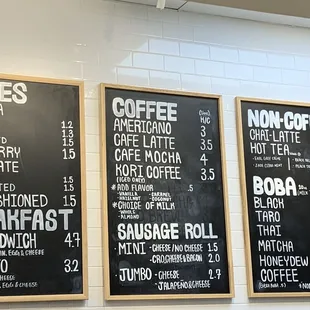 ES
1.2
1.3
RRY 1.5
ATE
1.5
1.5
SHIONED 1.5
AKFAST
DWICH 4.7
EGG & CHEESE
3.2
EGG & CHEESE
COFFEE
H/C
AMERICANO 3
CAFE LATTE 3.5
CAFE MOCHA 4
KORI COFFEE 3.5
(ICED ONLY)
*ADD FLAVOR .5
-VANILLA -CARAMEL
-HAZELNUT -COCONUT
*CHOICE OF MILK
-WHOLE
-ALMOND
SAUSAGE ROLL
MINI -CHEESE / NO CHEESE 1.5
BACON 2
JUMBO -CHEESE 2.7
-JALAPEÑO & CHEESE
NON-COF
CHAI-LATTE
HOT TEA
EARL GREY
BOBA
BLACK
TARO
THAI
MATCHA
HONEYDEW
COFFEE